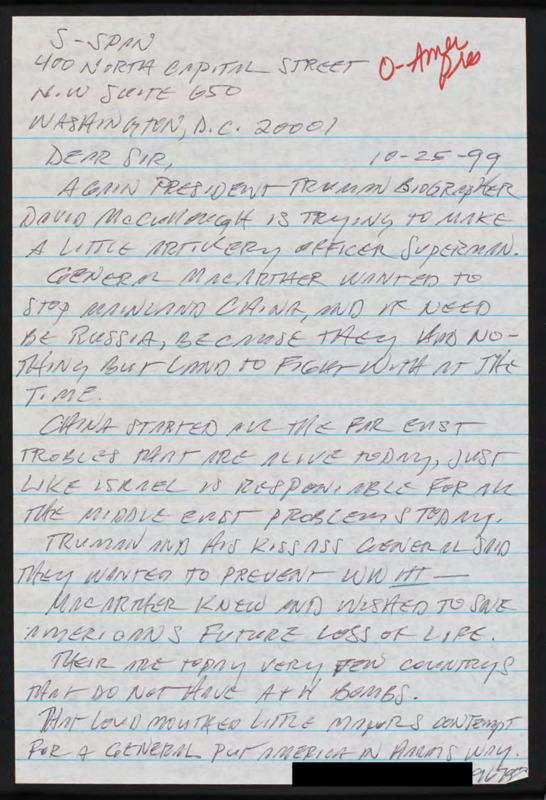 S-SPAN
400 NORTH CAPITAL STREET
N.W SUITE 650
WASHINGTON, D.C. 20001
O-Amer
Pres
DEAR SIR, 10-25-99
AGAIN PRESIDENT TRUMAN BIOGRAPHER
DAVID McCULLOUGH IS TRYING TO MAKE
A LITTLE ARTILLERY OFFICER SUPERMAN.
GENERAL MACARTHER WANTED TO
STOP MAINLAND CHINA, AND IF NEED
BE RUSSIA, BECAUSE THEY HAD NO-
THING BUT LAND TO FIGHT WITH AT THE
TIME.
CHINA STARTED ALL THE FAR EAST
TROBLES THAT ARE ALIVE TODAY, JUST
LIKE ISRAEL IS RESPONSIABLE FOR ALL
THE MIDDLE EAST PROBLEMS TODAY.
TRUMAN AND HIS KISSASS GENERAL SAID
THEY WANTED TO PREVENT WW III —
MACARTHER KNEW AND WISHED TO SAVE
AMERICANS FUTURE LOSS OF LIFE.
THEIR ARE TODAY VERY FEW COUNTRYS
THAT DO NOT HAVE A+H BOMBS.
THAT LOUD MOUTHED LITTLE MAJORS CONTEMPT
FOR A GENERAL PUT AMERICA IN HARMS WAY.